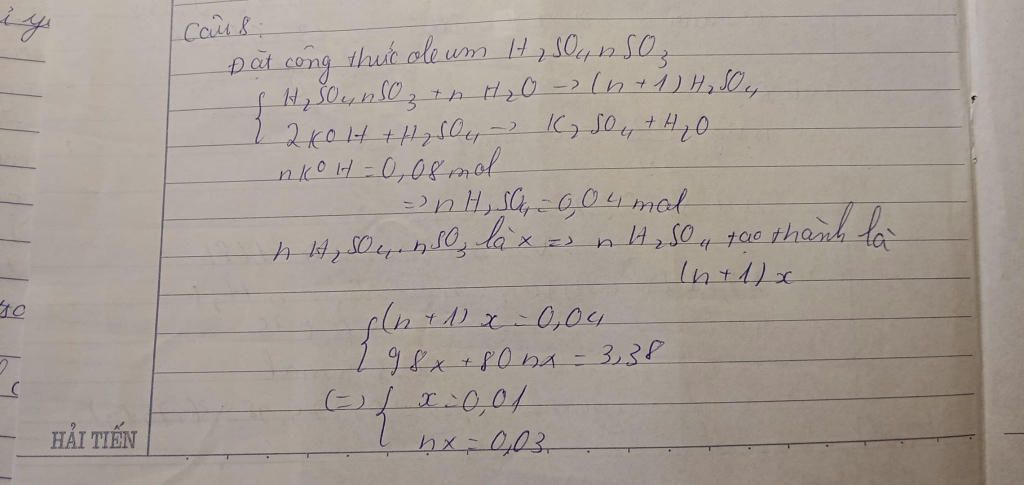 i y
Câu 8:
Đặt công thức oleum H₂SO₄nSO₃
{ H₂SO₄nSO₃ + n H₂O -> (n+1)H₂SO₄
2KOH + H₂SO₄ -> K₂SO₄ + H₂O
nKOH = 0,08 mol
=> nH₂SO₄ = 0,04 mol
n H₂SO₄.nSO₃ là x => n H₂SO₄ tạo thành là
(n+1)x
{ (n+1)x = 0,04
98x + 80nx = 3,38
(=) { x = 0,01
nx = 0,03
HẢI TIẾN